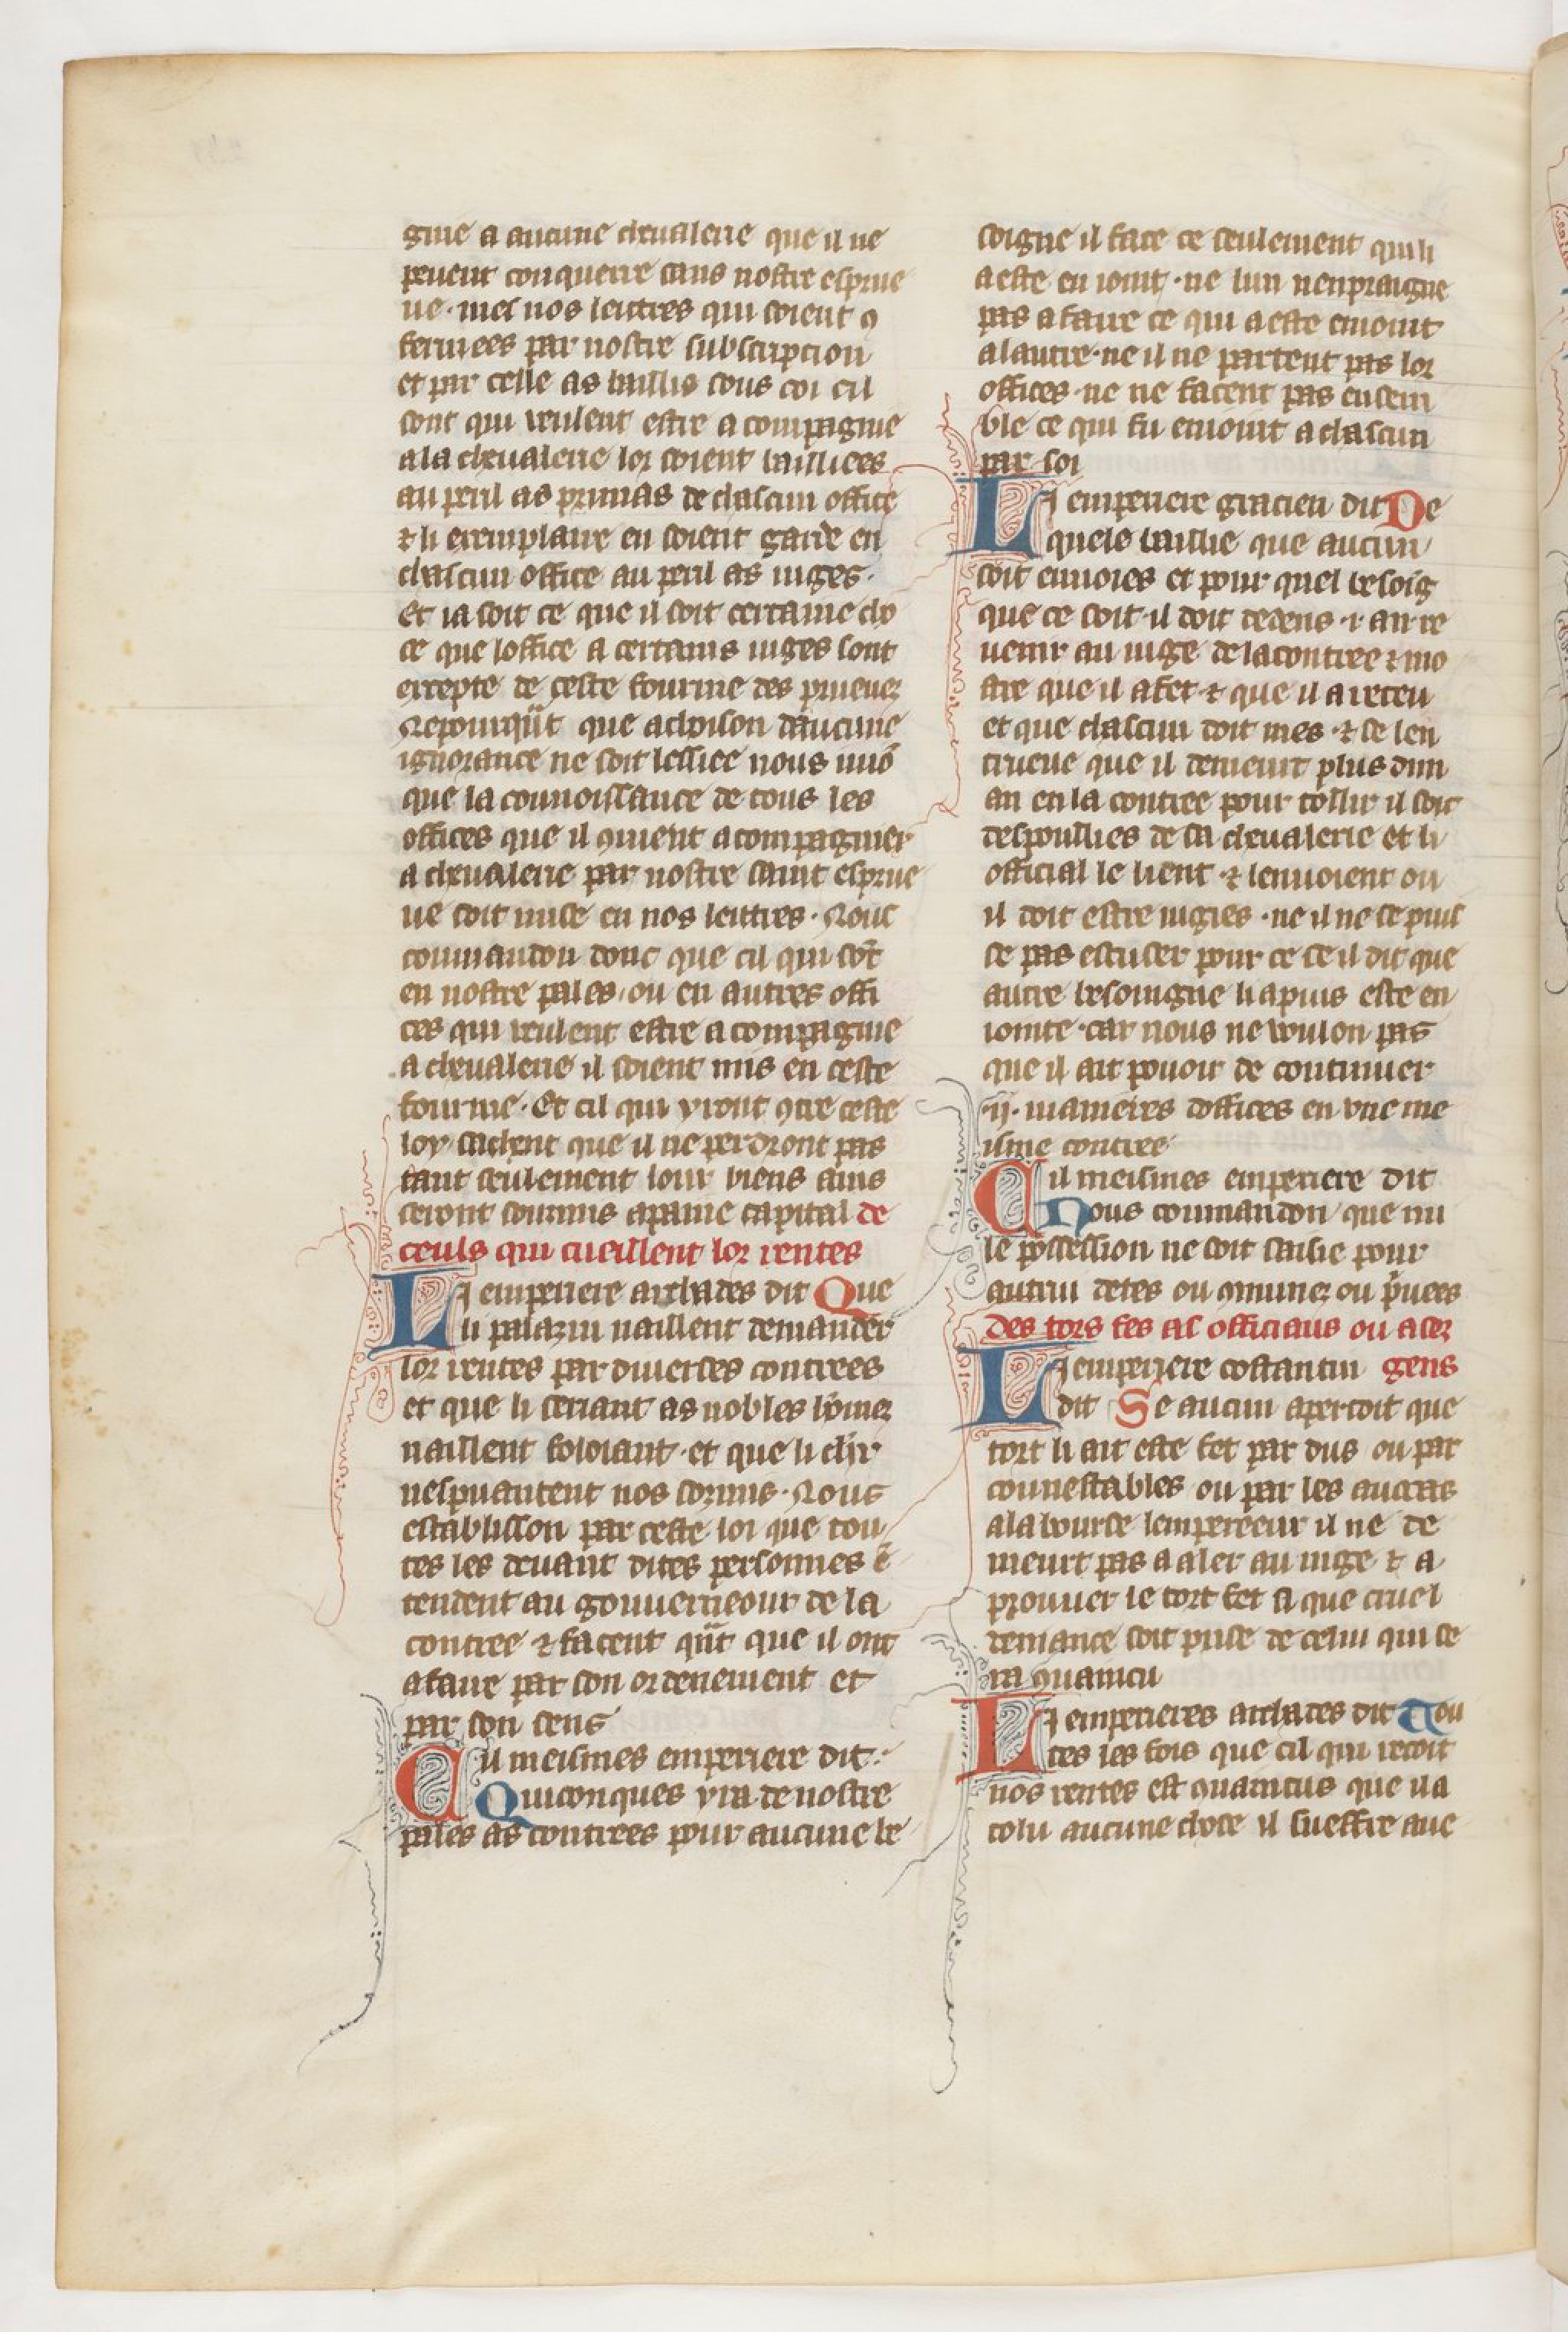 gnie a aucune cheualerie que il ne
peuent conquerre sans nostre esprue
ue · mes nos lettres qui soient ꝯ
fermees par nostre subscripcion
et par celle as baillis sous coi cil
sont qui veulent estre acompagnie
a la cheualerie lor soient bailliees
au peril as primas de chascun office
⁊ li exemplaire en soient garde en
chascun office au peril as iuges ·
Et ia soit ce que il soit certaine cho
ce que loffice a certains iuges sont
excepte de ceste fourme des priueez
Nepourqͣnt que achoison daucune
ignorance ne soit lessiee nous uulō
que la connoissance de tous les
offices que il ꝯuient acompagnier
a cheualerie par nostre saint esprue
ue soit mise en nos lettres · Nous
commandon donc que cil qui sōt
en nostre pales · ou en autres offi
ces qui veulent estre acompagnie
a cheualerie il soient mis en ceste
fourme · Et cil qui yront ꝯtre ceste
loy sachent que il ne perdront pas
tant seulement lour biens ains
seront soumis a paine capital de
ceuls qui cueillent lor rentes
Li emperiere archades dit Que
li palazin naillent demander
lor rentes par diuerses contrees
et que li seriant as nobles hōmez
naillent foloiant · et que li chr̄
nespuantent nos sozmis · Nous
establisson par ceste loi que tou
tes les deuant dites personnes ē
tendent au gouuerneour de la
contree ⁊ facent qͣnt que il ont
a faire par son ordenement et
par son sens
Cil meismes emperiere dit ·
Quiconques yra de nostre
pales as contrees pour aucune be
soigne il face ce seulement qui li
a este en ioint · ne lun nenpraigne
pas a faire ce qui a este enioint
a lautre · ne il ne partent pas lor
offices · ne ne facent pas ensem
ble ce qui fu enioint a chascun
par soi
Li emperiere gracien dit De
quele baillie que aucun
soit enuoies et pour quel besoig
que ce soit · il doit dedens · i · an re
uenir au iuge de la contree ⁊ mo
stre que il a fet ⁊ que il a receu
et que chascun doit mes · ⁊ se len
trueue que il demeurt plus dun
an en la contree pour tollir il soit
despoullies de sa cheualerie et li
official le lient ⁊ lenuoient ou
il doit estre iugies · ne il ne se puis
se pas escuser pour ce se il dit que
autre besoingne li a puis este en
iointe · car nous ne voulon pas
que il ait pouoir de continuer
· ij · manieres doffices en vne me
isme contree
Cil meismes emperiere dit
Nous commandon que nu
le possession ne soit saisie pour
autrui detes ou ꝯmunez ou p̄uees
des tors fes as officiaus ou a lez
Li emperiere costantin gens
dit Se aucun apercoit que
tort li ait este fet par dus ou par
counestables ou par les auctas
a la bourse lempereeur il ne de
meurt pas a aler au iuge ⁊ a
prouuer le tort fet si que cruel
deniance soit prise de celui qui se
ra ꝯuaincu
Li emperieres archades dit Tou
tes les fois que cil qui recoit
nos rentes est ꝯuaincus que il a
tolu aucune chose il sueffre aue